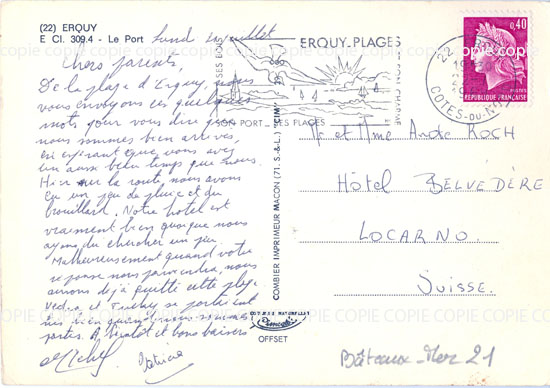 (22) ERQUY
E Cl. 309.4 - Le Port
Lundi juillet
Chers parents,
De la plage d'Erquy, nous
vous envoyons ces quelques
mots pour vous dire que
nous sommes bien arrivés,
en espérant que vous avez
un aussi beau temps que nous.
Hier sur la route, nous avons
eu un peu de pluie et du
brouillard. Notre hôtel est
vraiment bien quoique nous
ayons dû chercher un peu.
Malheureusement quand votre
réponse nous parviendra, nous
aurons déjà quitté cette plage
et se portent
très bien quand nous sommes
partis. A bientôt et bons baisers
Michel
Patricia
ERQUY-PLAGES
SON PORT - SES PLAGES
SON CHARME
0,40
REPUBLIQUE FRANÇAISE
POSTES
22
COTES-DU-N
COMBIER IMPRIMEUR MACON (71. S.-&-L.) "CIM"
OFFSET
Mr et Mme André KOCH
Hôtel BELVÉDÈRE
LOCARNO.
Suisse.
Bâteaux-Mer 21
COPIE COPIE COPIE COPIE COPIE COPIE COPIE
COPIE COPIE COPIE COPIE COPIE COPIE COPIE